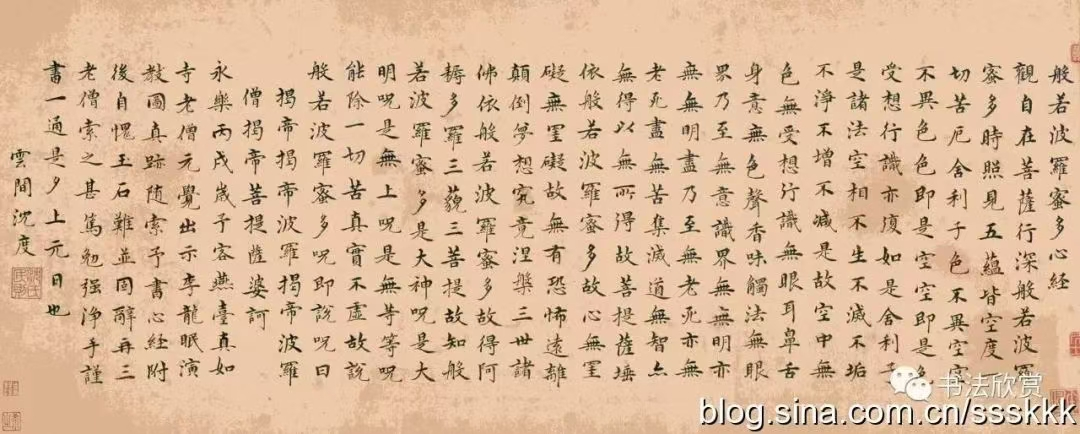 般若波羅蜜多心經
觀自在菩薩行深般若波羅
蜜多時照見五蘊皆空度一
切苦厄舍利子色不異空空
不異色色即是空空即是色
受想行識亦復如是舍利子
是諸法空相不生不滅不垢
不淨不增不減是故空中無
色無受想行識無眼耳鼻舌
身意無色聲香味觸法無眼
界乃至無意識界無無明亦
無無明盡乃至無老死亦無
老死盡無苦集滅道無智亦
無得以無所得故菩提薩埵
依般若波羅蜜多故心無罣
礙無罣礙故無有恐怖遠離
顛倒夢想究竟涅槃三世諸
佛依般若波羅蜜多故得阿
耨多羅三藐三菩提故知般
若波羅蜜多是大神呪是大
明呪是無上呪是無等等呪
能除一切苦真實不虛故說
般若波羅蜜多呪即說呪曰
揭帝揭帝波羅揭帝波羅
僧揭帝菩提薩婆訶
永樂丙戌歲予客燕臺真如
寺老僧元覺出示李龍眠演
教圖真跡随索予書心經附
後自愧玉石難並固辭再三
老僧索之甚篤勉强浄手謹
書一通是夕上元日也
雲間沈度
书法欣赏
blog.sina.com.cn/ssskkk